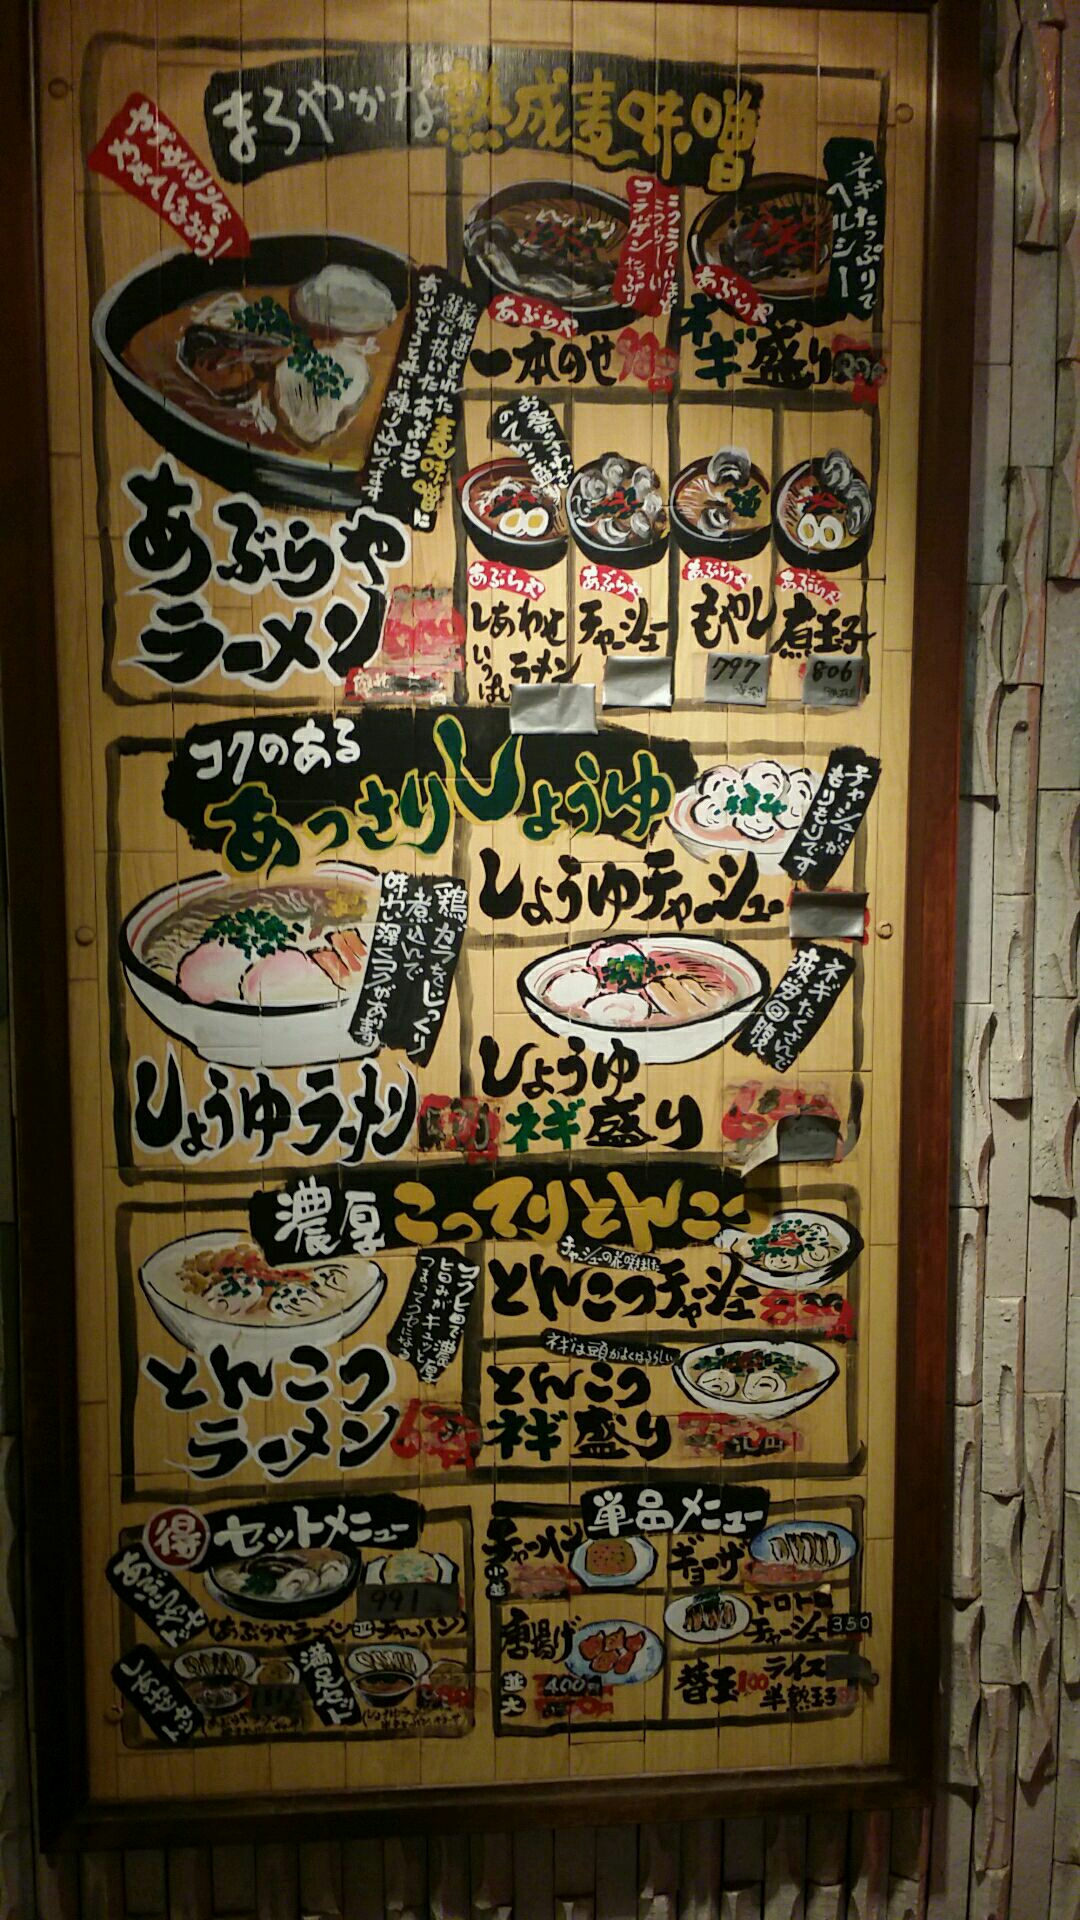 まろやかな熟成麦味噌
カプサイシンで
やせてしまおう!
厳選された麦味噌に
選び抜いたあぶらと
あぶらや
ラーメン
コラーゲンたっぷり
あぶらや
一本のせ
ネギたっぷりで
ヘルシー
あぶらや
ネギ盛り
あぶらや
しあわせ
いっぱい
ラーメン
あぶらや
チャーシュー
あぶらや
もやし
797
あぶらや
煮玉子
806
コクのある
あっさりしょうゆ
鶏ガラをじっくり
煮込んで
味わい深いコクがあります
しょうゆラーメン
チャーシューが
もりもりです
しょうゆチャーシュー
ネギたくさんで
疲労回腹
しょうゆ
ネギ盛り
濃厚こってりとんこつ
コクと旨で濃厚
旨みがギュッと
とんこつ
ラーメン
チャーシューの花咲きました
とんこつチャーシュー
ネギは頭がよくなるらしい
とんこつ
ネギ盛り
得 セットメニュー
991
(あぶらやラーメン チャーハン)
満足セット
単品メニュー
チャーハン
ギョーザ
唐揚げ
並 400円
大
トロトロ
チャーシュー 350
替玉 100
ライス
半熟玉子